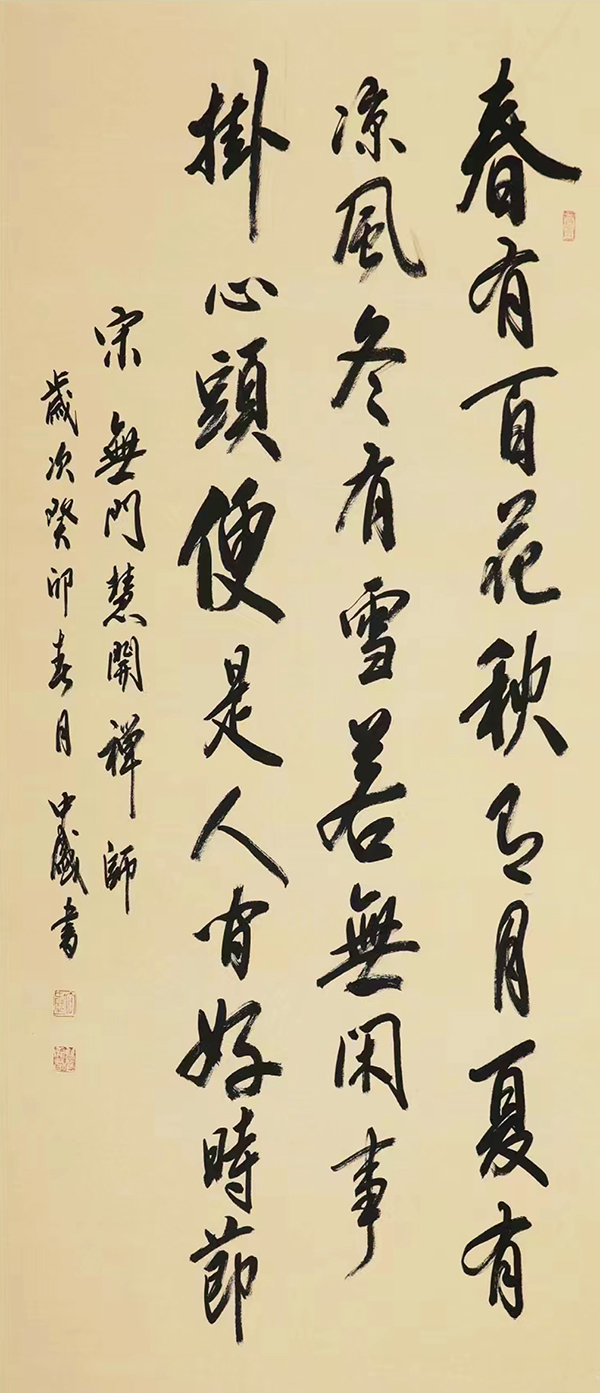 春有百花秋有月夏有
凉風冬有雪若無閑事
掛心頭便是人间好時節
宋無門慧開禪師
歲次癸卯春月中盛書